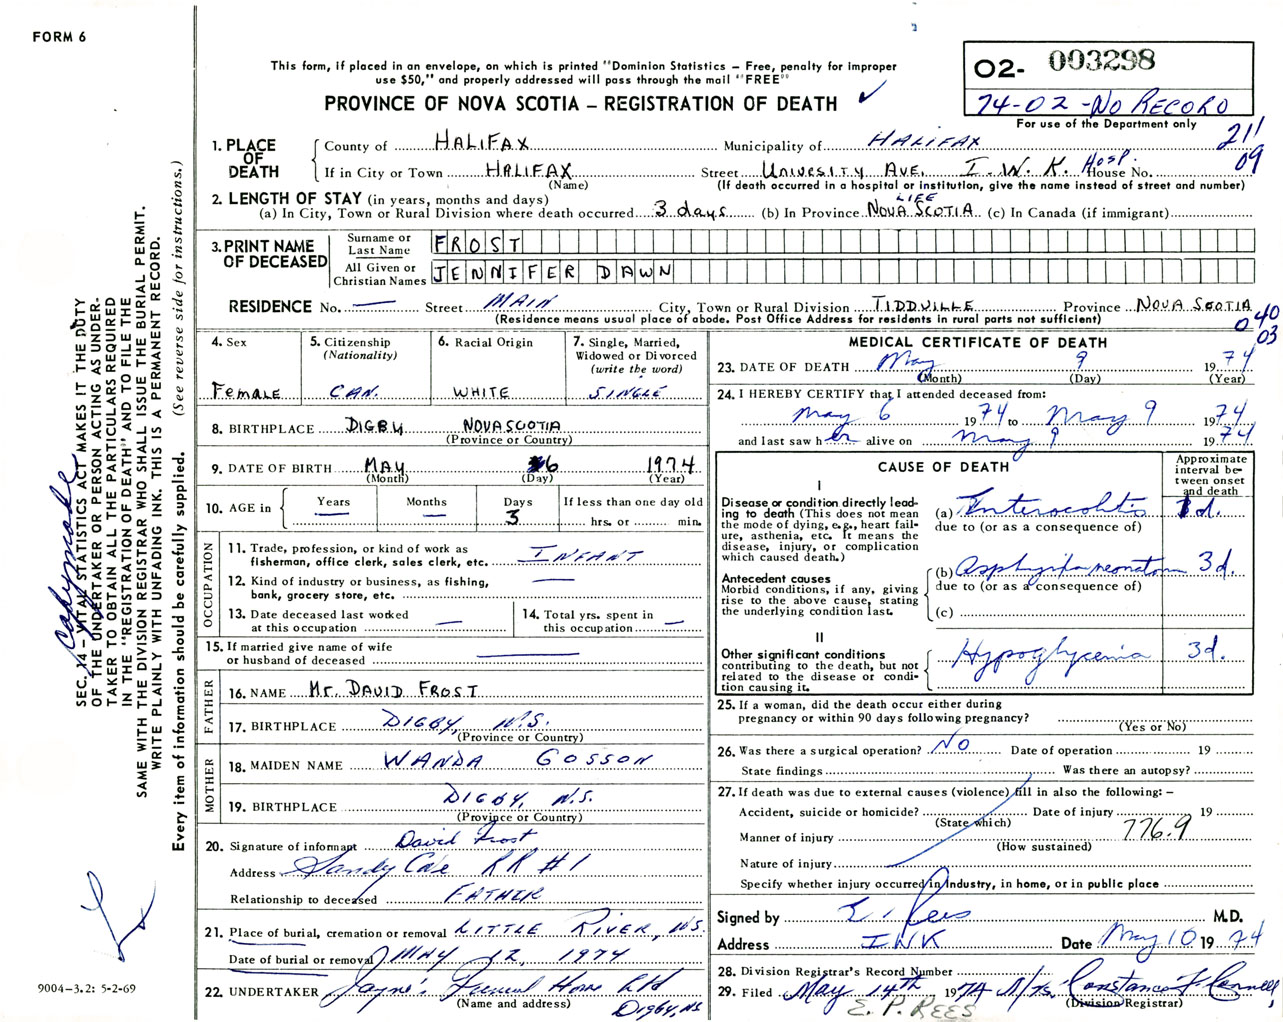 FORM 6
This form, if placed in an envelope, on which is printed "Dominion Statistics – Free, penalty for improper
use $50," and properly addressed will pass through the mail "FREE"
PROVINCE OF NOVA SCOTIA – REGISTRATION OF DEATH ✓
02- 003298
74-02-No RECORD
For use of the Department only
211
09
1. PLACE OF DEATH
County of HALIFAX Municipality of HALIFAX
If in City or Town HALIFAX Street UNIVESITY AVE. I.W.K. HOSP. House No.
(Name) (If death occurred in a hospital or institution, give the name instead of street and number)
2. LENGTH OF STAY (in years, months and days)
(a) In City, Town or Rural Division where death occurred 3 days (b) In Province LIFE NOVA SCOTIA (c) In Canada (if immigrant)
3. PRINT NAME OF DECEASED
Surname or Last Name FROST
All Given or Christian Names JENNIFER DAWN
RESIDENCE No. — Street MAIN City, Town or Rural Division TIDDVILLE Province NOVA SCOTIA
(Residence means usual place of abode. Post Office Address for residents in rural parts not sufficient)
0 40
03
4. Sex Female
5. Citizenship (Nationality) CAN.
6. Racial Origin WHITE
7. Single, Married, Widowed or Divorced (write the word) SINGLE
8. BIRTHPLACE DIGBY NOVA SCOTIA
(Province or Country)
9. DATE OF BIRTH MAY 6 1974
(Month) (Day) (Year)
10. AGE in Years — Months — Days 3 If less than one day old hrs. or min.
OCCUPATION
11. Trade, profession, or kind of work as fisherman, office clerk, sales clerk, etc. INFANT
12. Kind of industry or business, as fishing, bank, grocery store, etc. —
13. Date deceased last worked at this occupation —
14. Total yrs. spent in this occupation —
15. If married give name of wife or husband of deceased —
FATHER
16. NAME Mr. DAVID FROST
17. BIRTHPLACE DIGBY, N.S.
(Province or Country)
MOTHER
18. MAIDEN NAME WANDA GOSSON
19. BIRTHPLACE DIGBY, N.S.
(Province or Country)
20. Signature of informant David Frost
Address Sandy Cove RR #1
Relationship to deceased FATHER
21. Place of burial, cremation or removal LITTLE RIVER, N.S.
Date of burial or removal MAY 12, 1974
22. UNDERTAKER Jayne's Funeral Home Ltd
(Name and address) Digby, NS
MEDICAL CERTIFICATE OF DEATH
23. DATE OF DEATH May 9 1974
(Month) (Day) (Year)
24. I HEREBY CERTIFY that I attended deceased from:
May 6 1974 to May 9 1974
and last saw her alive on May 9 1974
CAUSE OF DEATH
Approximate interval between onset and death
I
Disease or condition directly leading to death (This does not mean the mode of dying, e.g., heart failure, asthenia, etc. It means the disease, injury, or complication which caused death.)
(a) Enterocolitis 1d.
due to (or as a consequence of)
Antecedent causes
Morbid conditions, if any, giving rise to the above cause, stating the underlying condition last.
(b) Asphyxia neonatorum 3d.
due to (or as a consequence of)
(c)
II
Other significant conditions
contributing to the death, but not related to the disease or condition causing it.
Hypoglycemia 3d.
25. If a woman, did the death occur either during pregnancy or within 90 days following pregnancy?
(Yes or No)
26. Was there a surgical operation? NO Date of operation 19
State findings Was there an autopsy?
27. If death was due to external causes (violence) fill in also the following: –
Accident, suicide or homicide? Date of injury 19
(State which)
Manner of injury 776.9
(How sustained)
Nature of injury
Specify whether injury occurred in Industry, in home, or in public place
Signed by E. Rees M.D.
Address IWK Date May 10 1974
28. Division Registrar's Record Number
29. Filed May 14th 1974 Constance F Connell
(Division Registrar)
E. P. REES
SEC. 14 – VITAL STATISTICS ACT MAKES IT THE DUTY
OF THE UNDERTAKER OR PERSON ACTING AS UNDER-
TAKER TO OBTAIN ALL THE PARTICULARS REQUIRED
IN THE "REGISTRATION OF DEATH" AND TO FILE THE
SAME WITH THE DIVISION REGISTRAR WHO SHALL ISSUE THE BURIAL PERMIT.
WRITE PLAINLY WITH UNFADING INK. THIS IS A PERMANENT RECORD.
Every item of information should be carefully supplied. (See reverse side for instructions.)
9004-3.2: 5-2-69